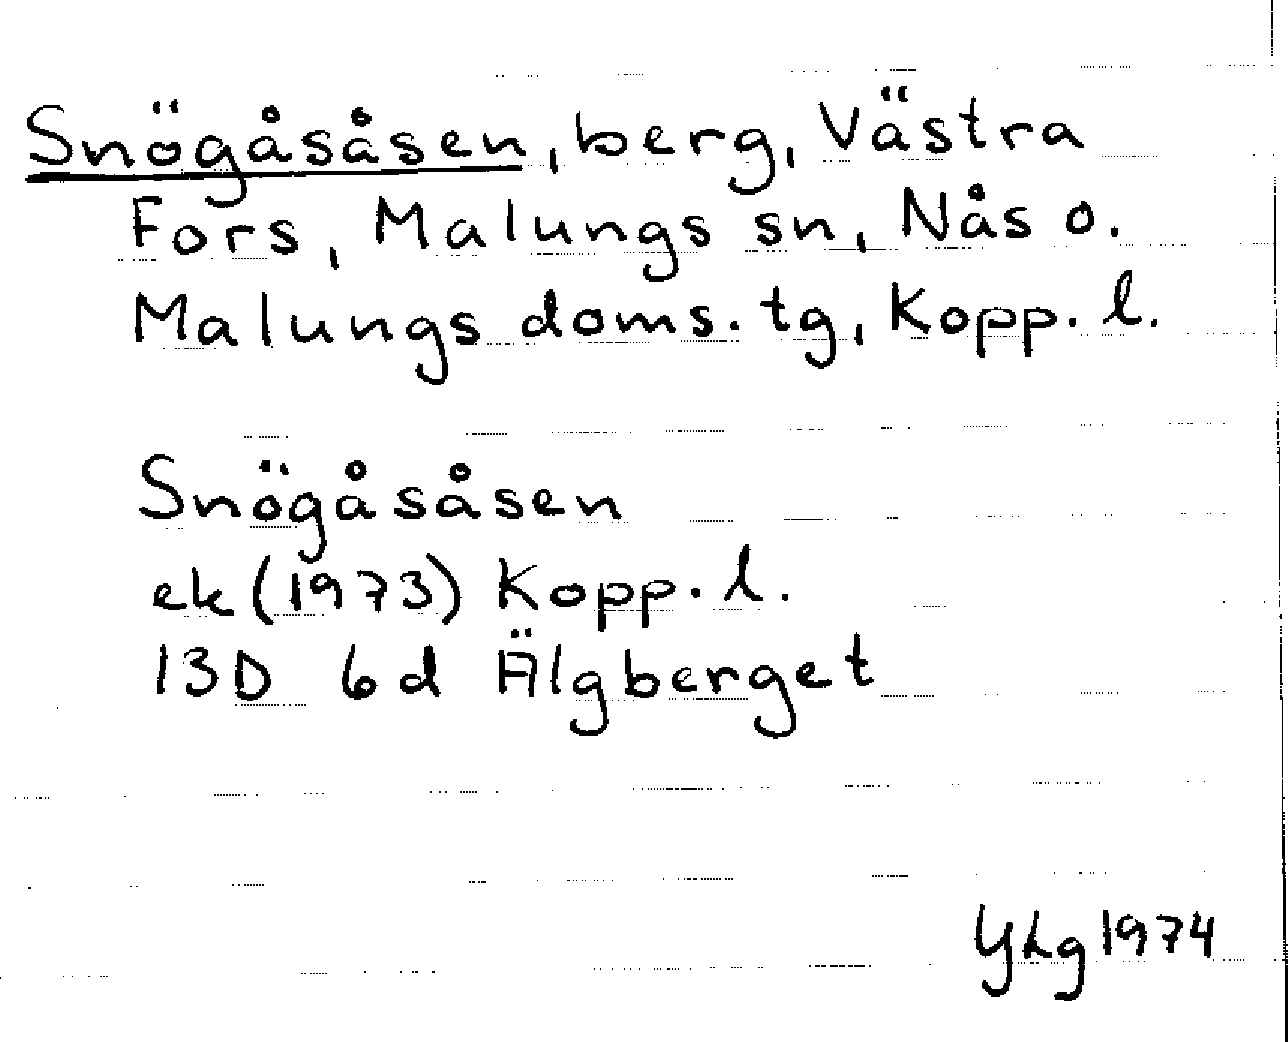 Snögåsåsen, berg, Västra
Fors, Malungs sn, Nås o.
Malungs doms. tg, Kopp. l.
Snögåsåsen
ek (1973) Kopp. l.
13D 6d Älgberget
YLg 1974